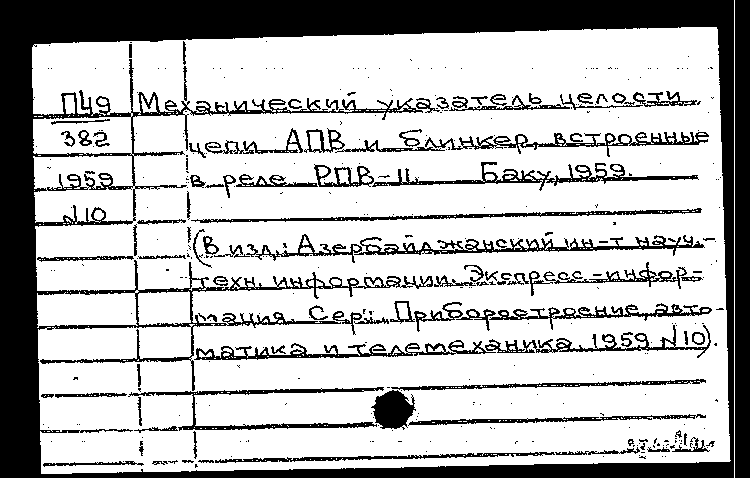 П49 Механический указатель целости
382 цепи АПВ и блинкер, встроенные
1959 в реле РПВ-11. Баку, 1959.
N10
(В изд.: Азербайджанский ин-т науч.-
техн. информации. Экспресс-инфор-
мация. Сер.: Приборостроение, авто-
матика и телемеханика. 1959 N10).